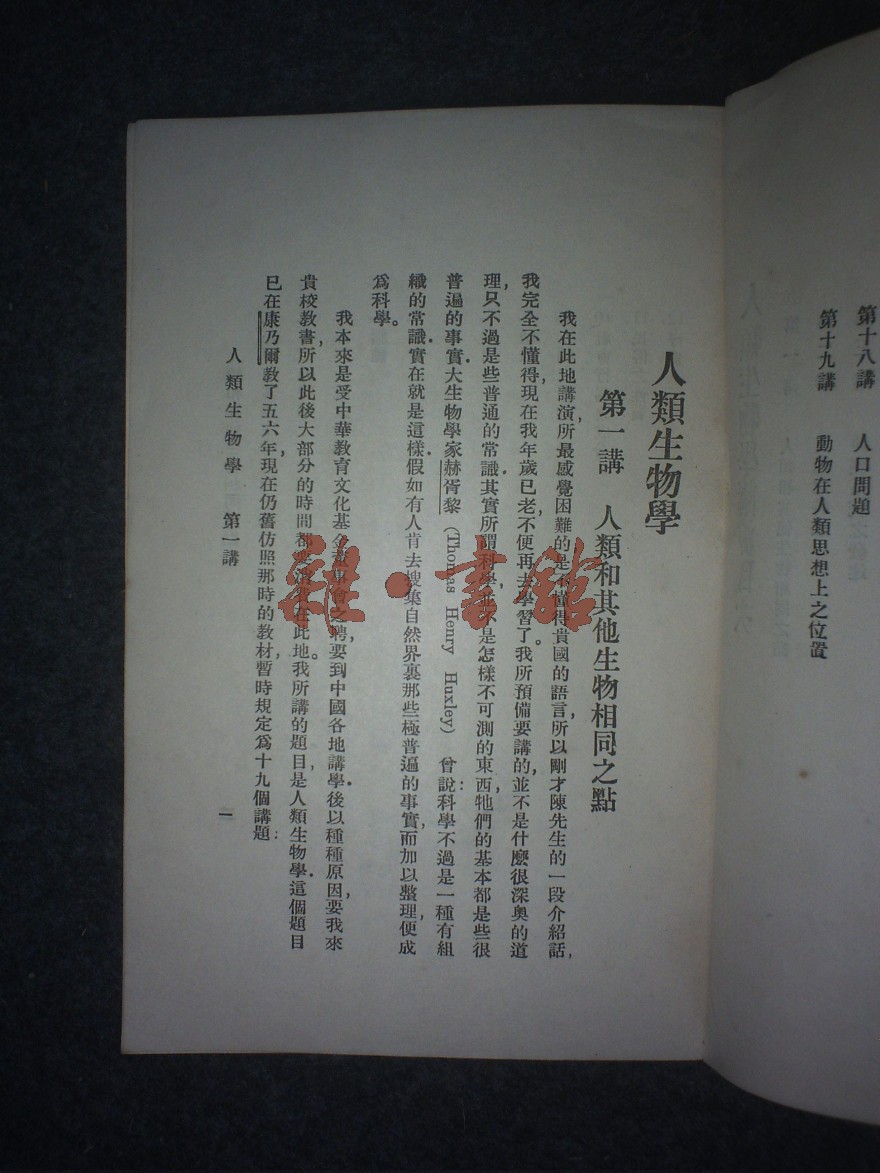 第十八講　人口問題
第十九講　動物在人類思想上之位置
人類生物學
第一講　人類和其他生物相同之點
我在此地講演，所最感覺困難的，是不懂得貴國的語言，所以剛才陳先生的一段介紹話，
我完全不懂得，現在我年歲已老，不便再去學習了。我所預備要講的，並不是什麼很深奧的道
理，只不過是些普通的常識。其實所謂科學，並不是怎樣不可測的東西，牠們的基本都是些很
普遍的事實。大生物學家赫胥黎（Thomas Henry Huxley）曾說：科學不過是一種有組
織的常識。實在就是這樣。假如有人肯去搜集自然界裏那些極普遍的事實，而加以整理，便成
為科學。
我本來是受中華教育文化基金董事會之聘，要到中國各地講學。後以種種原因，要我來
貴校教書，所以此後大部分的時間都要消費在此地。我所講的題目，是人類生物學。這個題目
已在康乃爾教了五六年，現在仍舊仿照那時的教材，暫時規定為十九個講題：
人類生物學　第一講
一
羅·書館